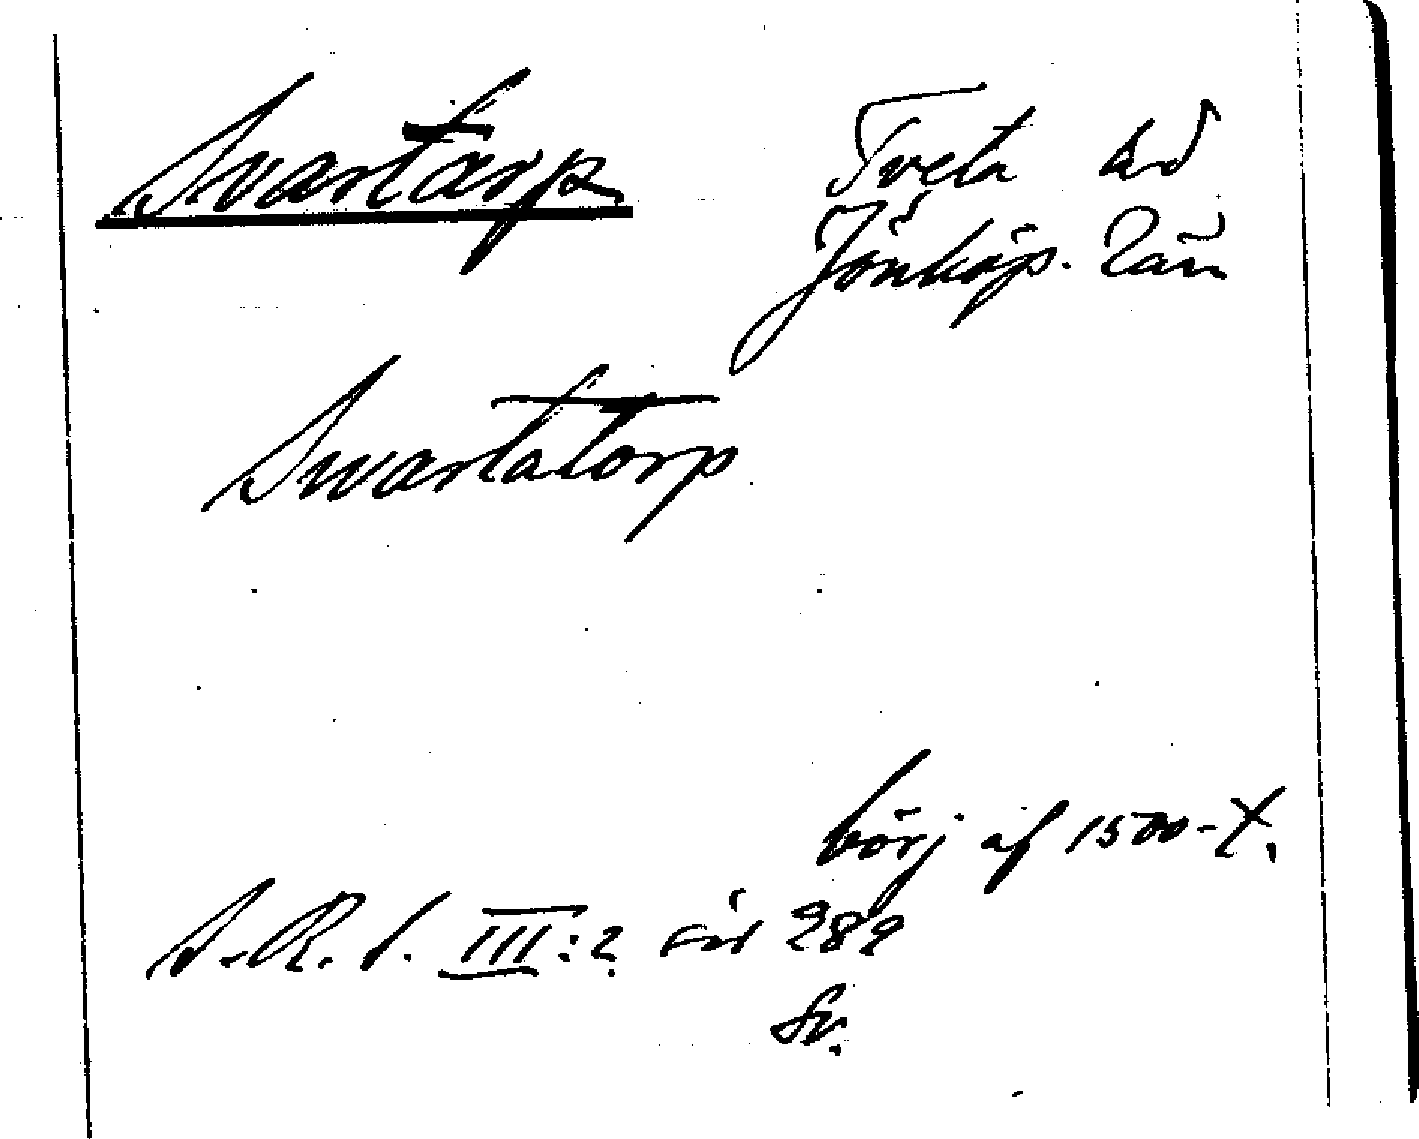 Svartarp
Tveta hd
Jönköp. län
Swartatorp
börj af 1500-t.
S.R.S. III:2 sid 289
Sv.